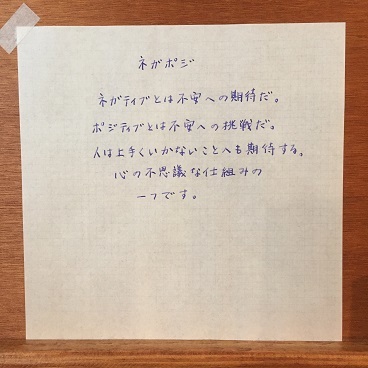 ネガポジ
ネガティブとは不安への期待だ。
ポジティブとは不安への挑戦だ。
人は上手くいかないことへも期待する。
心の不思議な仕組みの
一つです。